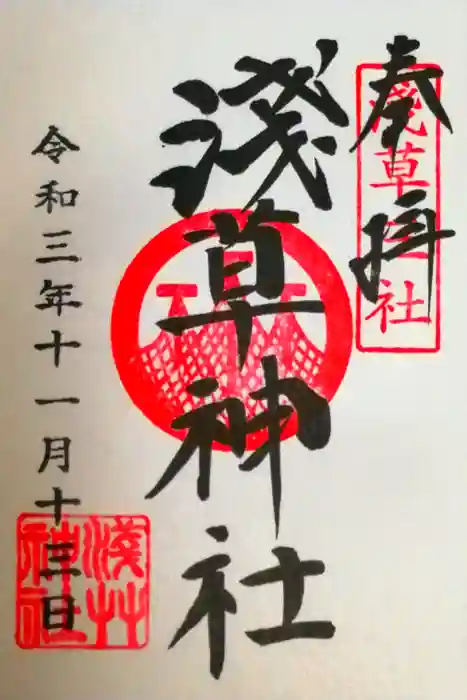 奉拝
淺草神社
淺草神社
令和三年十一月十三日
淺草神社